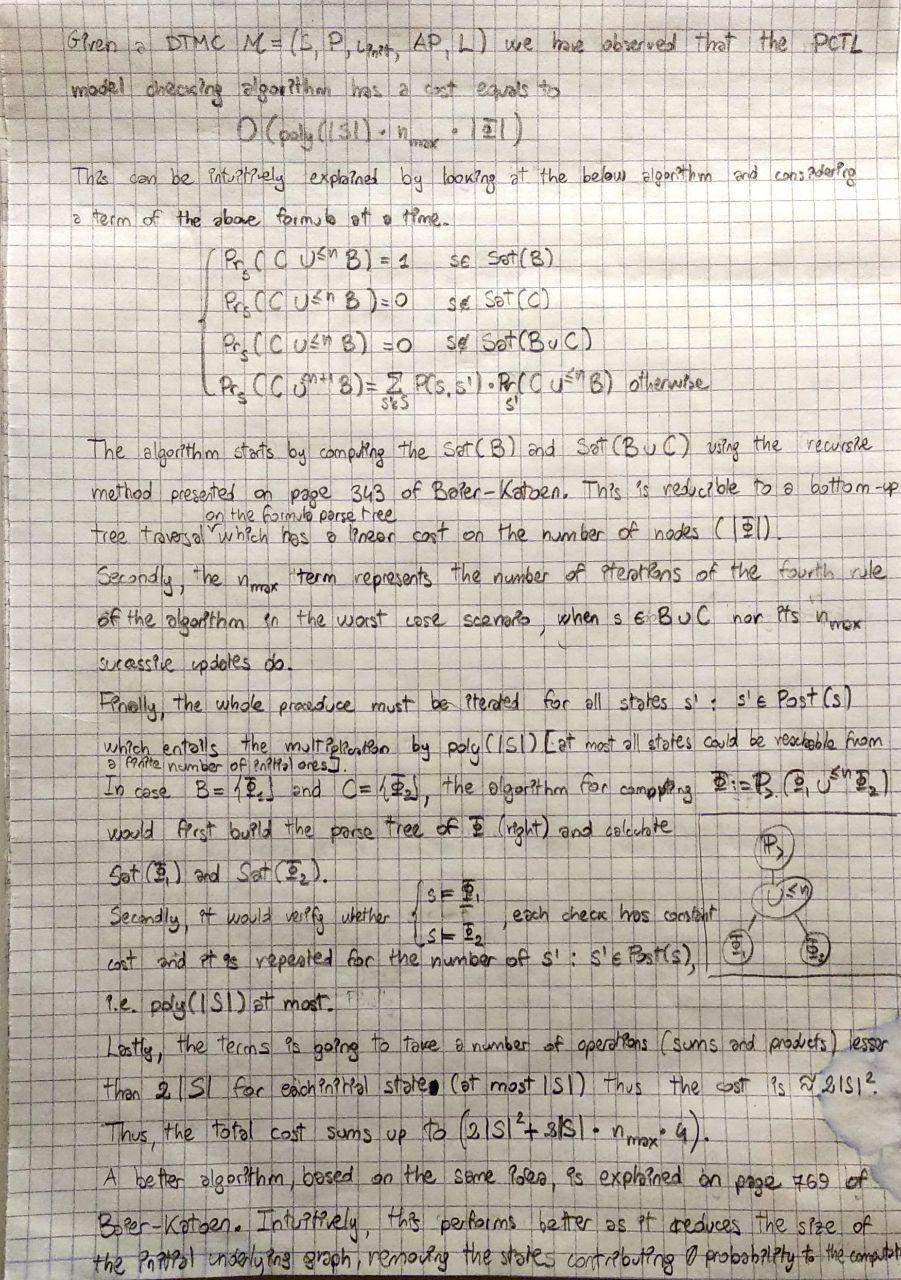 Given a DTMC M = (S, P, ι_init, AP, L) we have observed that the PCTL
model checking algorithm has a cost equals to
O(poly(|S|) · n_max · |Φ|)
This can be intuitively explained by looking at the below algorithm and considering
a term of the above formula at a time.
Pr_s (C U^≤n B) = 1 s ∈ Sat(B)
Pr_s (C U^≤n B) = 0 s ∉ Sat(C)
Pr_s (C U^≤n B) = 0 s ∉ Sat(B ∪ C)
Pr_s (C U^n+1 B) = Σ_s'∈S P(s, s') · Pr_s' (C U^≤n B) otherwise
The algorithm starts by computing the Sat(B) and Sat(B ∪ C) using the recursive
method presented on page 343 of Baier-Katoen. This is reducible to a bottom-up
on the formula parse tree
tree traversal which has a linear cost on the number of nodes (|Φ|).
Secondly, the n_max term represents the number of iterations of the fourth rule
of the algorithm in the worst case scenario, when s ∈ B ∪ C nor its n_max
successive updates do.
Finally, the whole procedure must be iterated for all states s' : s' ∈ Post(s)
which entails the multiplication by poly(|S|) [at most all states could be reachable from
a finite number of initial ones].
In case B = {Φ_1} and C = {Φ_2}, the algorithm for computing Φ := P_> (Φ_1 U^≤n Φ_2)
would first build the parse tree of Φ (right) and calculate
P_>
Sat(Φ_1) and Sat(Φ_2).
U^≤n
s ⊨ Φ_1
Secondly, it would verify whether , each check has constant
s ⊨ Φ_2
Φ_1 Φ_2
cost and it is repeated for the number of s' : s' ∈ Post(s),
i.e. poly(|S|) at most.
Lastly, the terms is going to take a number of operations (sums and products) lesser
than 2|S| for each initial state (at most |S|) thus the cost is ≈ 2|S|².
Thus, the total cost sums up to (2|S|² + 3|S| · n_max · 4).
A better algorithm, based on the same idea, is explained on page 769 of
Baier-Katoen. Intuitively, this performs better as it reduces the size of
the initial underlying graph, removing the states contributing 0 probability to the computat